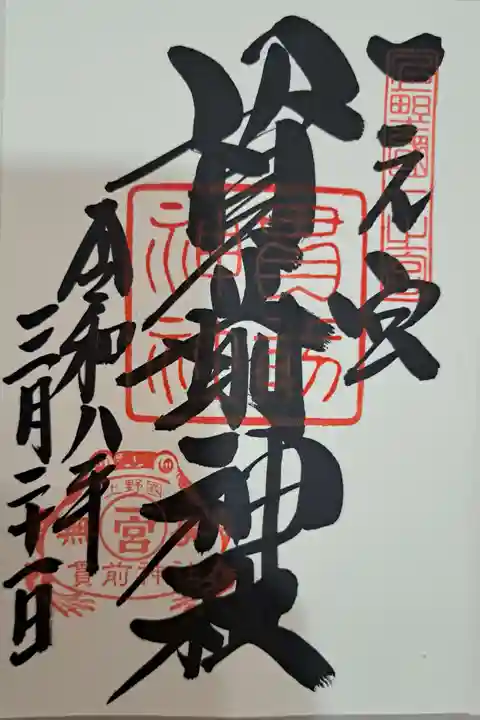 一之宮
上野國一之宮
貫前神社
貫前神社
令和八年
三月二十一日
上野國
無
宮
貫前神社